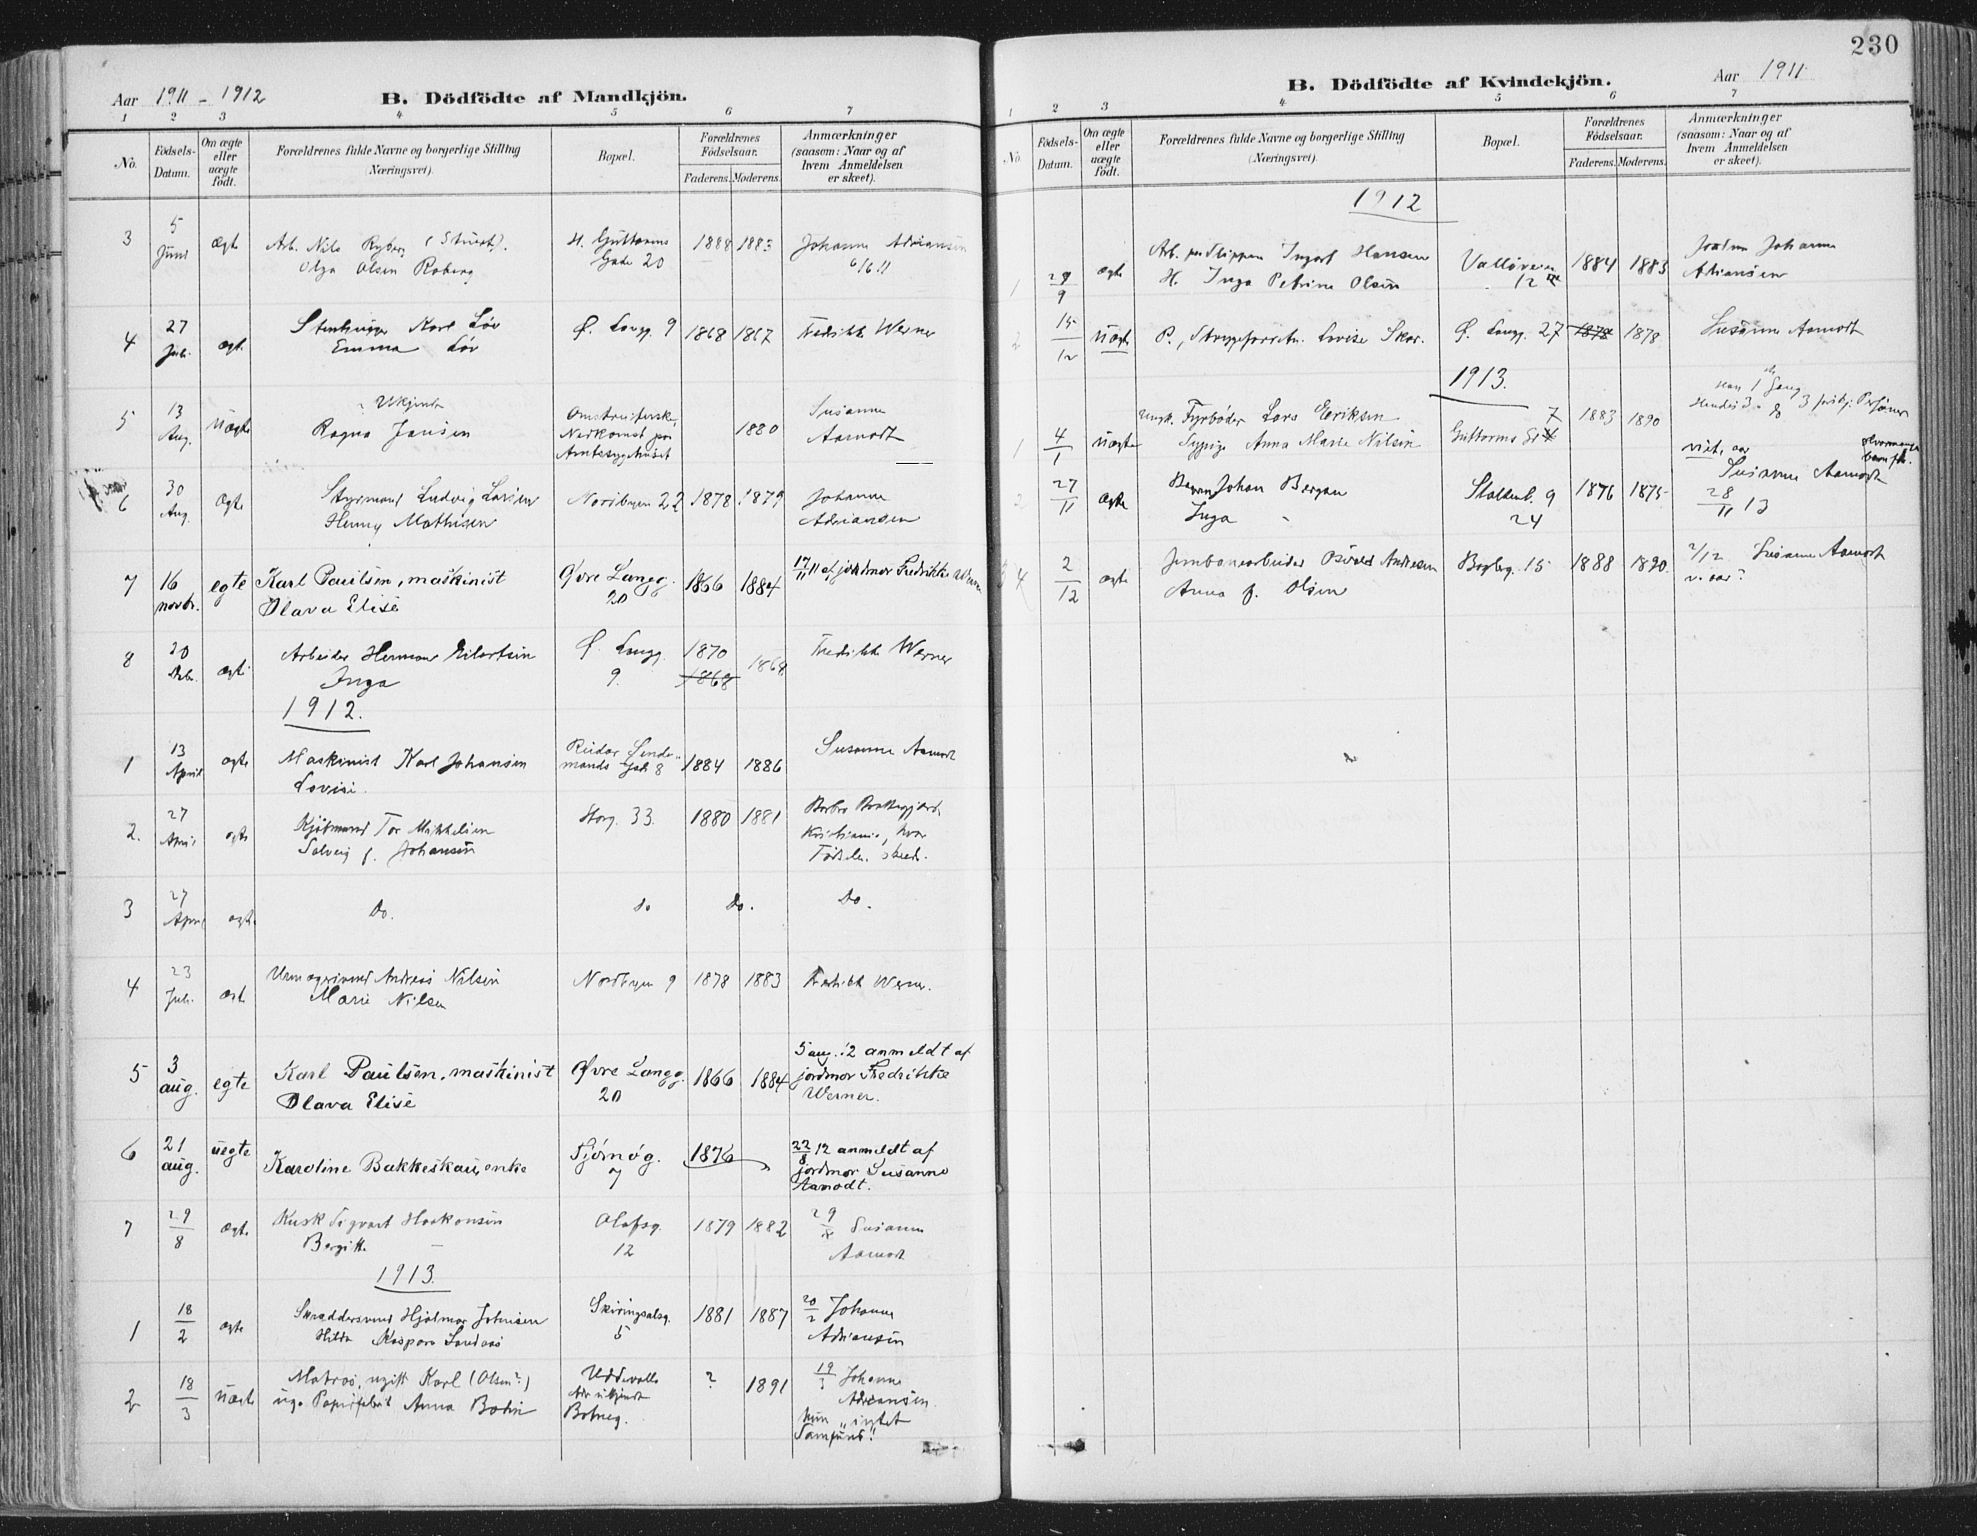 Aar 1911 - 1912
B. Dödfödte af Mandkjön.
1 2 3 4 5 6 7
No.
Födsels-Datum.
Om ægte eller uægte födt.
Forældrenes fulde Navne og borgerlige Stilling (Næringsvei).
Bopæl.
Forældrenes Födselsaar.
Faderens. Moderens.
Anmærkninger (saasom: Naar og af hvem Anmeldelsen er skeet).
3 5 Juni ægte Arb. Nils Ryberg
Olga Olsen Roberg
H. Guttorms Gade 20 1888 1883 Johanne Adriansen 6/6 11
4 27 Juli ægte Stenhugger Karl Löv
Emma Löv
Ø. Langg. 9 1868 1867 Fredikke Werner
5 13 Aug. uægte Ukjendt
Ragna Jansen
1880 Susanne Aamodt
6 30 Aug. ægte Styrmand Ludvig Larsen
Henny Mathisen
Nordbyen 22 1878 1879 Johanne Adriansen
7 16 novbr. egte Karl Paulsen, maskinist
Olava Elise
Øvre Langg. 20 1866 1884 17/11 11 af jordmor Fredrikke Werner
8 20 Debr. ægte Arbeider Herman Eilertsen
Inga
Ø. Langg. 9. 1870 1868 1868 Fredikke Werner
1912.
1 13 April ægte Maskinist Karl Johansen
Lovise.
Reidar Sendemands gade 8 1884 1886 Susanne Aamodt
2. 27 April ægte Kjöbmand Tor Mikkelsen
Solveig f. Johansen
Storg. 33. 1880 1881
Kristiania, hvor Födselen skede.
3 27 April ægte Do. do Do. Do.
4 23 Juli ægte Urmagersvend Andreas Nilsen
Marie Nilsen
Nordbyen 9 1878 1883 Fredikke Werner.
5 3 aug. egte Karl Paulsen, maskinist
Olava Elise
Øvre Langg. 20 1866 1884 5 aug. 12 anmeldt af jordmor Fredrikke Werner.
6 21 aug. uegte Karoline Bakkeskau, enke
Tjømøg. 7 1876 22/8 12 anmeldt af jordmor Susanne Aamodt.
7 29/8 ægte Kusk Sigvart Haakonsen
Bergitte —
Olafsg. 12 1879 1882 29/8 Susanne Aamodt
1913.
1 18/2 ægte Skræddersvend Hjalmar Johnsen
Hilda Kaspara
Skiringsalsg. 5 1881 1887 20/2 Johanne Adriansen
2 18/3 uægte Matros, ugift Karl (Olsen?)
ug. Papirfabrik Anna Bodin
Uddevalla
Adr ukjendt
Botneg.
? 1891 19/3 Johanne Adriansen.
hun "intet Samfund"!
230
B. Dödfödte af Kvindekjön.
Aar 1911
1 2 3 4 5 6 7
No.
Födsels-Datum.
Om ægte eller uægte födt.
Forældrenes fulde Navne og borgerlige Stilling (Næringsvei).
Bopæl.
Forældrenes Födselsaar.
Faderens. Moderens.
Anmærkninger (saasom: Naar og af hvem Anmeldelsen er skeet).
1912
1 29/9 ægte Arb. paa Slippen Ingart Hansen
H. Inga Petrine Olsen
Vallöveien 12 1884 1883 Jordm Johanne Adriansen
2 15/12 uægte Lovise Skar.
Ø. Langg. 27 1878 1878 Susanne Aamodt
1913.
1 4/1 uægte Ungk. Fyrböder Lars Eriksen
Sypige Anna Marie Nilsen
Guttorms Gt 7 1883 1890
2 27/11 ægte Johan Bergan
Inga —
9 24 1876 1875 Susanne Aamodt 28/11 13
4 2/12 ægte Jernbanearbeider Osvald Andresen
Anna f. Olsen
Bogbg. 15 1888 1890 2/12 Susanne Aamodt